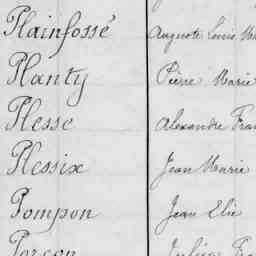 Plainfossé Auguste Louis
Planty Pierre Marie
Plesse Alexandre
Plessix Jean Marie
Pompon Jean Elie
Porcon Julien